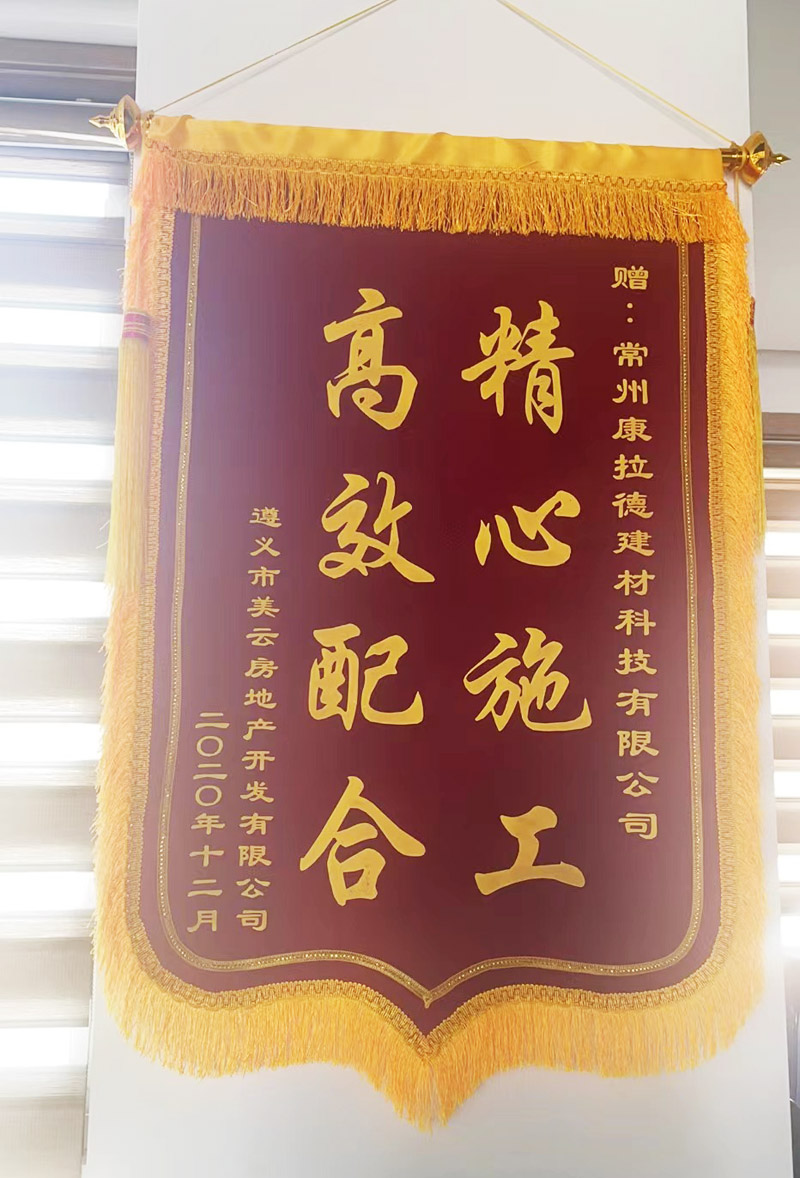 赠：常州康拉德建材科技有限公司
精心施工
高效配合
遵义市美云房地产开发有限公司
二〇二〇年十二月